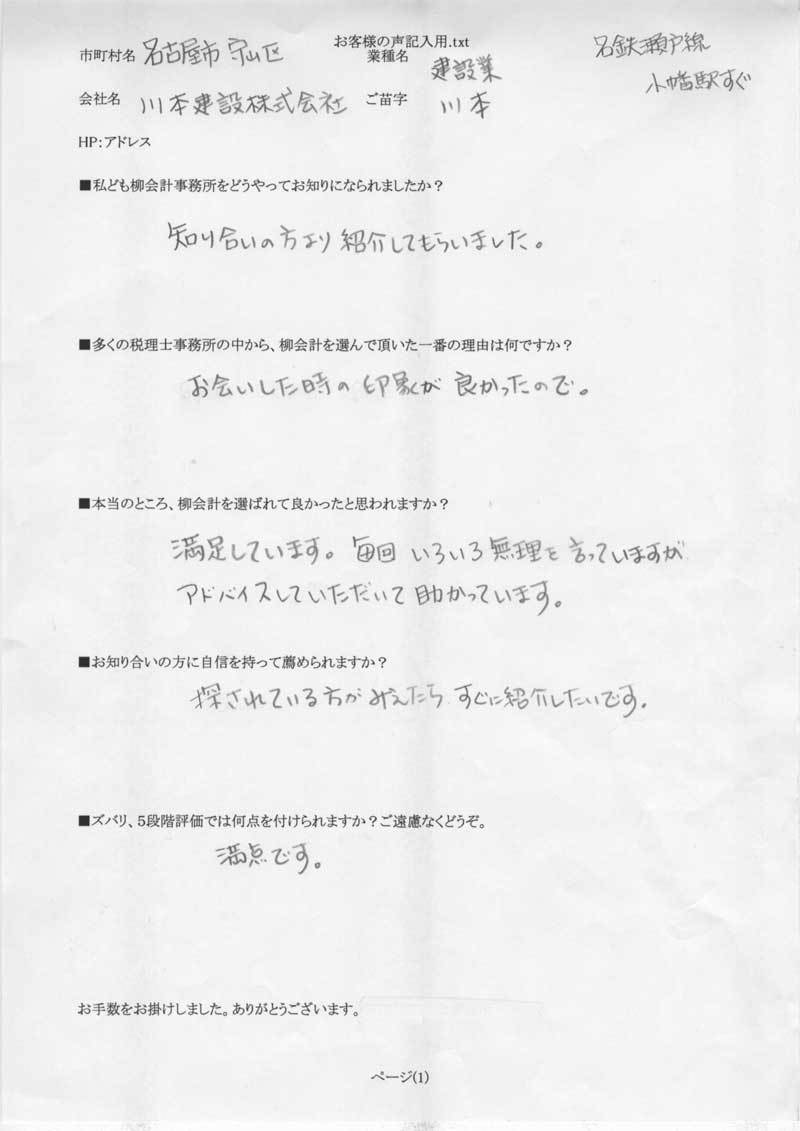 お客様の声記入用.txt
市町村名 名古屋市守山区 業種名 建設業 名鉄瀬戸線
小幡駅すぐ
会社名 川本建設株式会社 ご苗字 川本
HP:アドレス
■私ども柳会計事務所をどうやってお知りになられましたか？
知り合いの方より紹介してもらいました。
■多くの税理士事務所の中から、柳会計を選んで頂いた一番の理由は何ですか？
お会いした時の印象が良かったので。
■本当のところ、柳会計を選ばれて良かったと思われますか？
満足しています。毎回いろいろ無理を言っていますが
アドバイスしていただいて助かっています。
■お知り合いの方に自信を持って薦められますか？
探されている方がみえたらすぐに紹介したいです。
■ズバリ、5段階評価では何点を付けられますか？ご遠慮なくどうぞ。
満点です。
お手数をお掛けしました。ありがとうございます。
ページ(1)